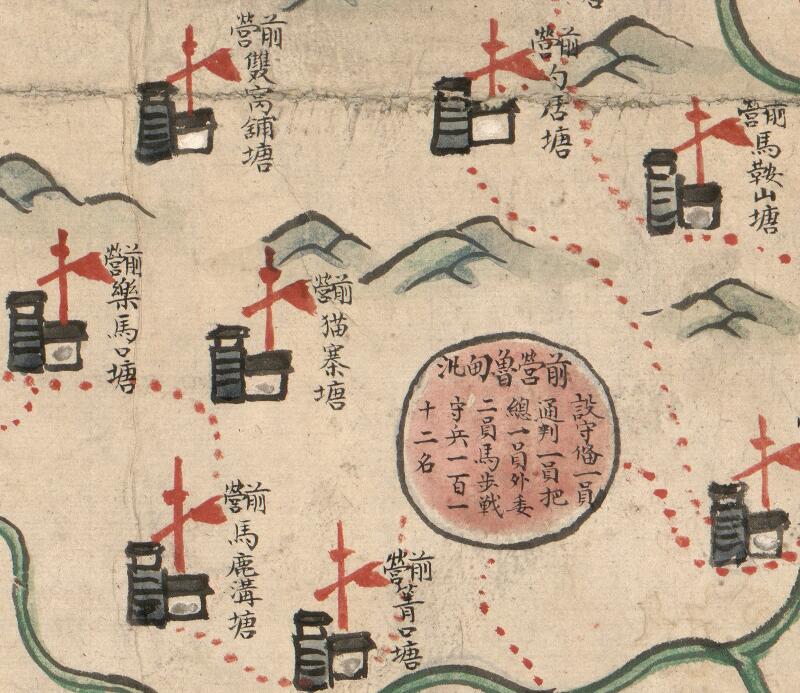 前營雙窩舖塘
前營灼居塘
前營馬鞍山塘
前營樂馬口塘
前營猫寨塘
前營魯甸汛
設守俻一員
通判一員把
總一員外委
二員馬步戰
守兵一百一
十二名
前營馬鹿溝塘
前營箐口塘